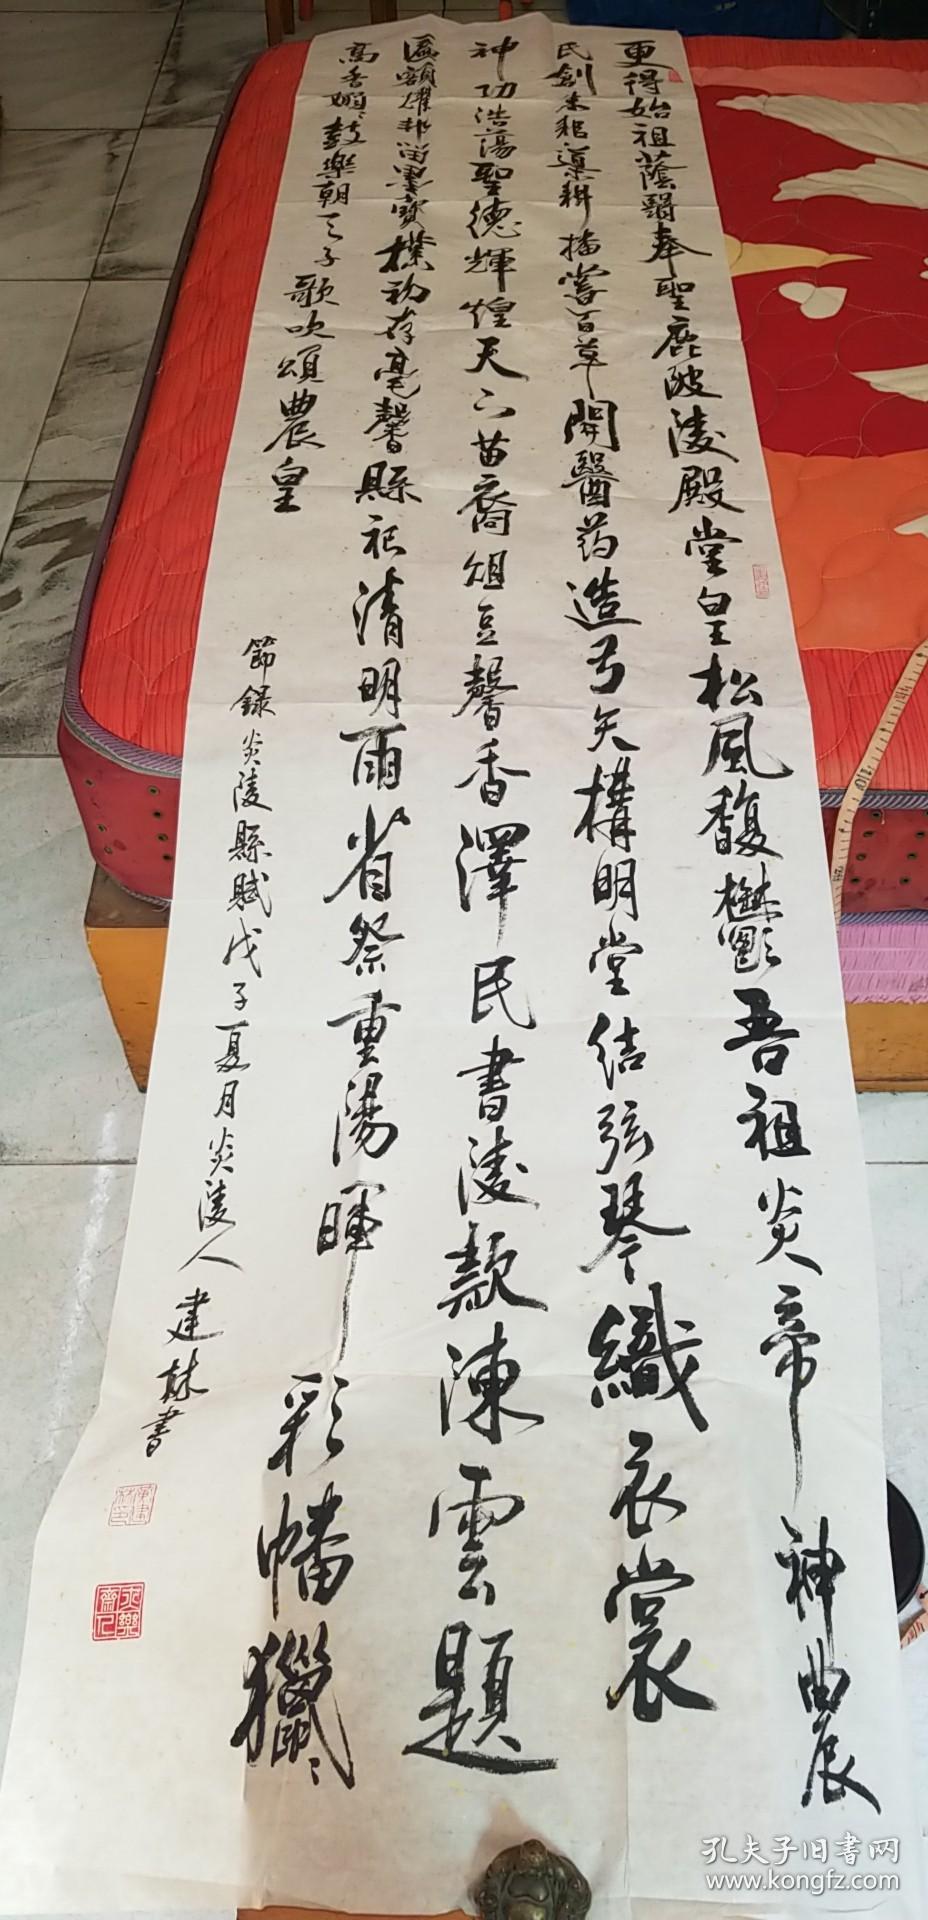 更得始祖蔭翳奉聖鹿陂陵殿堂皇松風馥鬱吾祖炎帝神農
民創耒耜導耕播嘗百草開醫药造弓矢構明堂结弦琴織衣裳
神功浩蕩聖德輝煌天下苗裔俎豆馨香澤民書陵款陳雲題
匾額耀邦留墨寶樸初存毫馨縣祀清明雨省祭重陽暉彩幡獵々
高香嫋々鼓樂朝天子歌吹頌農皇
節録炎陵縣賦戊子夏月炎陵人建林書
孔夫子旧书网
www.kongfz.com